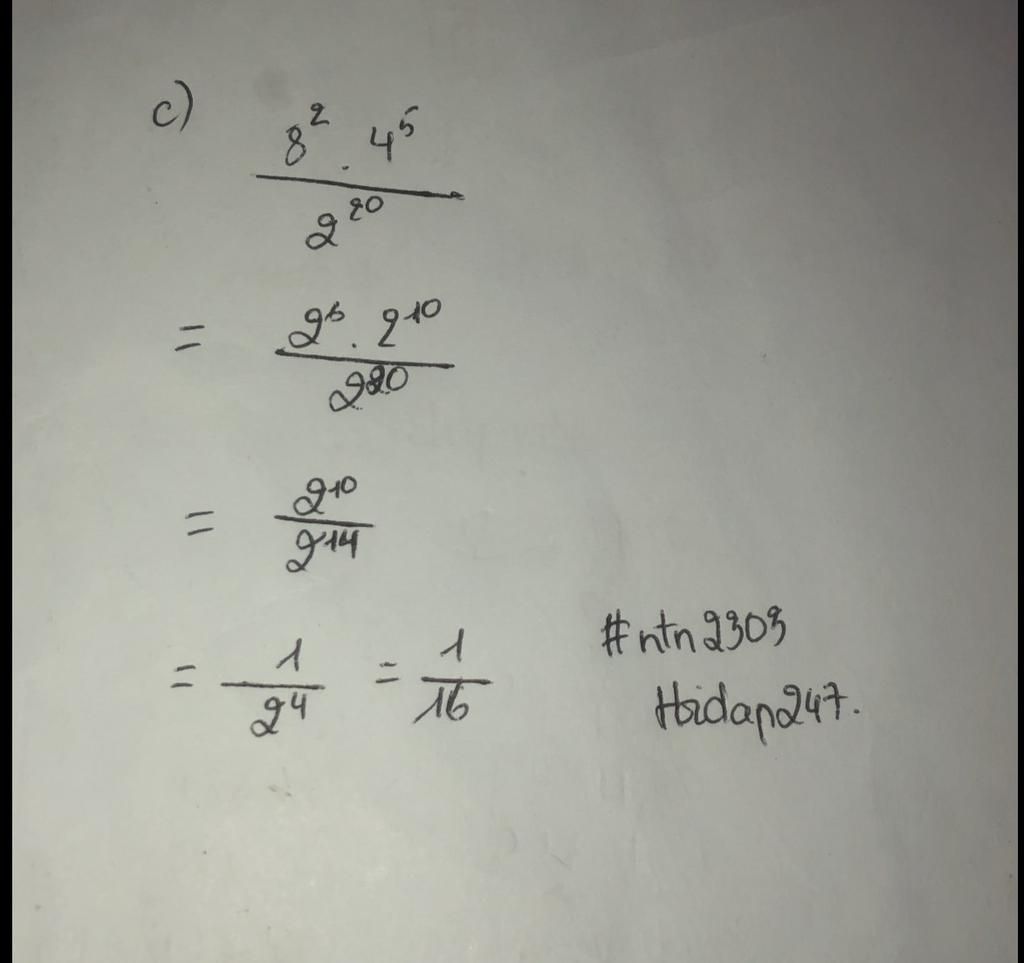 c) 8² . 4⁵ / 2²⁰
= 2⁶ . 2¹⁰ / 2²⁰
= 2¹⁰ / 2¹⁴
= 1 / 2⁴ = 1 / 16
#ntn2303
Hoidap247.